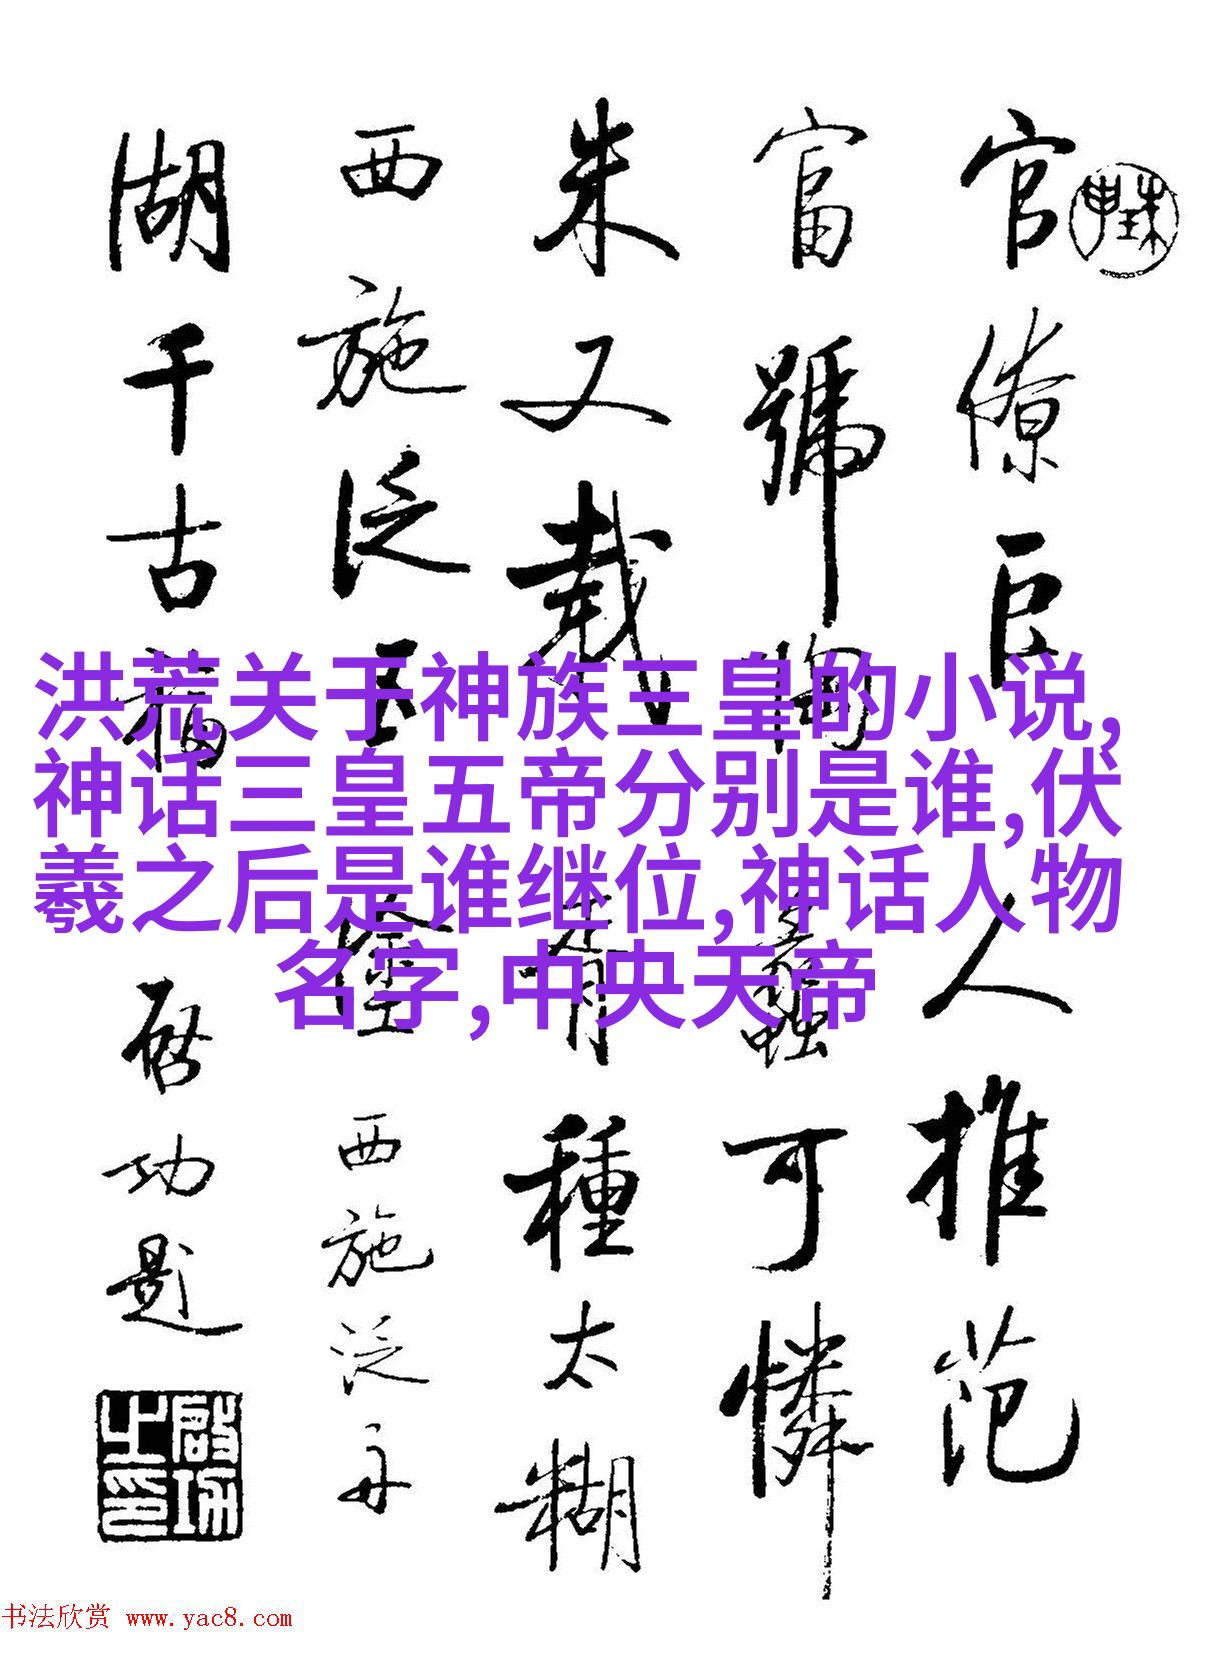 洪荒关于神族三皇的小说,
神话三皇五帝分别是谁,伏
羲之后是谁继位,神话人物
名字,中央天帝
官僚巨人推范
富號陶蠡可憐
朱又載種太糊
西施泛五西施泛舟
湖千古福啓功題
啟功之印
书法欣赏 www.yac8.com